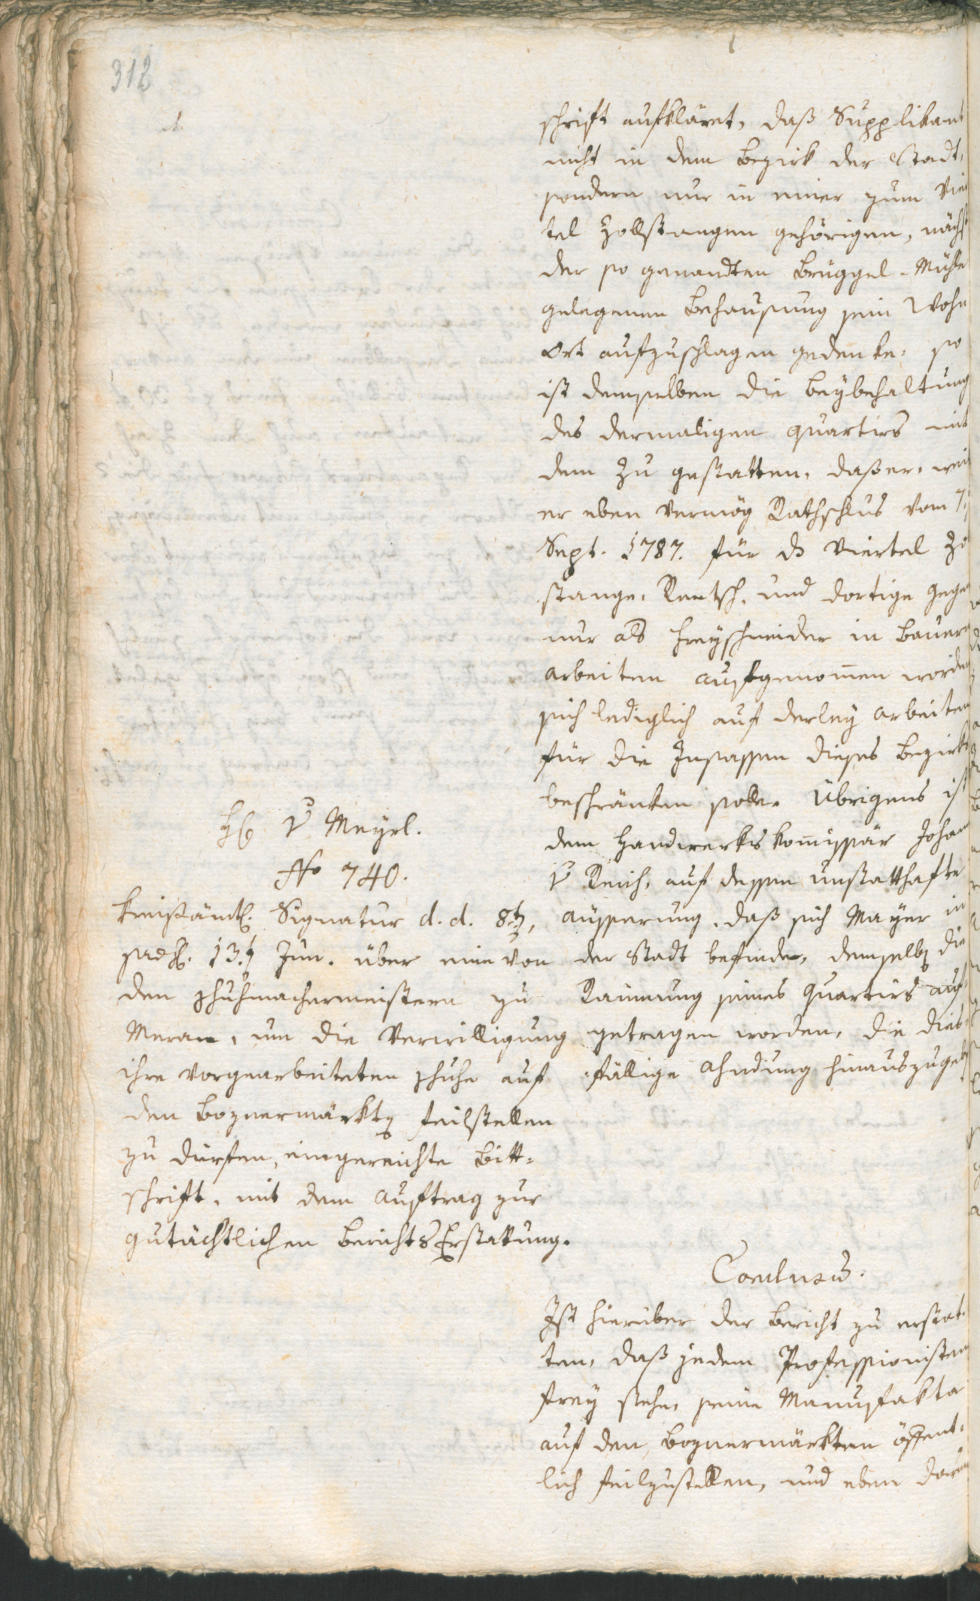 312
schrift aufkläret, daß Supplikant
nicht in dem Bezirk der Stadt,
sondern nur in einer zum Vier
tel Zollstangen gehörigen, nächst
der so genandten Bruggel-Mühle
gelegenen Behausung sein Wohn
Ort aufzuschlagen gedenke, so
ist demselben die Beybehaltung
des dermaligen Quartirs mit
dem zu gestatten, daß er, weil
er eben vermög Rathschlus vom 7.
Sept. 1787. für ds Viertel Zo
stange, Rentsch, und dortige Gege
nur als Freyschneider in Bauern
arbeiten aufgenom̄en worden
sich lediglich auf derley Arbeiten
für die Insassen dieses Bezirks
beschränken solle. Übrigens ist
dem Handwerkskom̄issär Johan
V Reich, auf dessen unstatthafte
Äusserung, daß sich Mayer in
der Stadt befinde, demselben die
Raimung seines Quartirs auf
getragen worden, die dies
fällige Ahndung hinauszugeben
H V Meyrl.
No 740.
Kreisämtl. Signatur d. d. 8t,
praes. 13.t Jun. über eine von
den Schuhmachermeistern zu
Meran, um die Verwilligung
ihre vorgearbeiteten Schuhe auf
den Boznermärkten feilstellen
zu dürfen, eingereichte Bitt=
schrift, mit dem Auftrag zur
gutächtlichen BerichtsErstattung.
Conclusum.
Ist hierüber der Bericht zu erstat
ten, daß jedem Professionisten
frey stehe, seine Manufakta
auf den Boznermärkten öffent=
lich feilzustellen, und eben darum